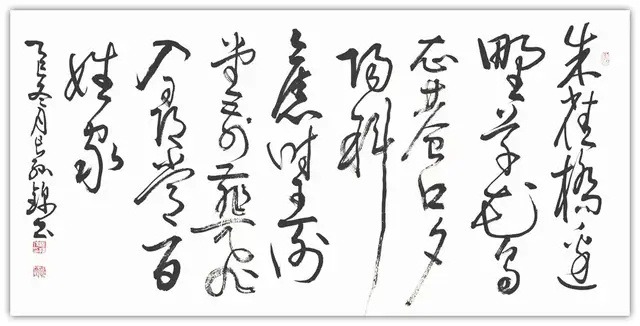 朱雀橋邊
野草花烏
衣巷口夕
陽斜
舊時王謝
堂前燕飛
入尋常百
姓家
乙巳冬月錦书